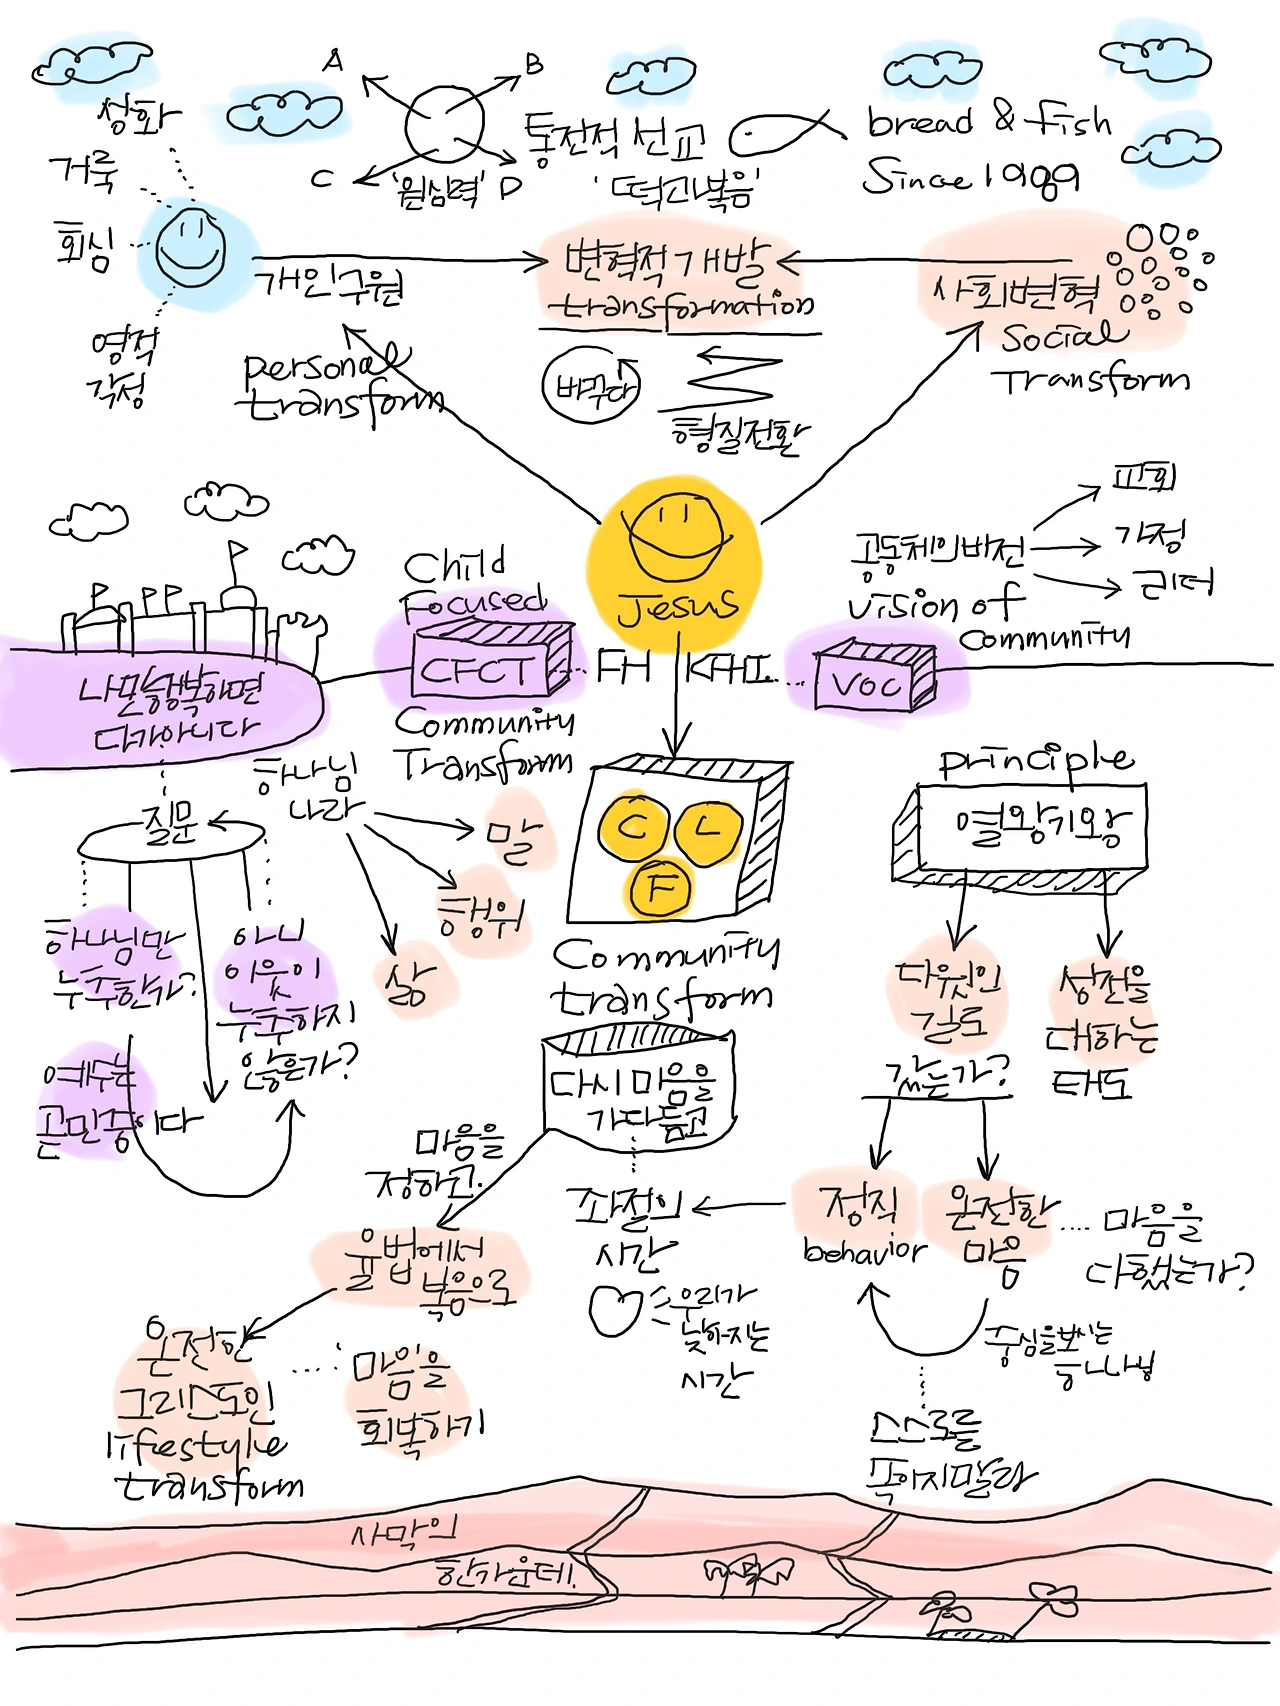 A
B
C
D
'원심력'
통전적 선교
'떡과복음'
bread & fish
Since 1989
성화
거룩
회심
영적
각성
개인구원
personal
transform
변혁적개발
transformation
바꾸다
형질전환
사회변혁
Social
Transform
Jesus
공동체의비전
Vision of
Community
교회
가정
리더
Child
Focused
CFCT
Community
Transform
FH
KFHI.
VOC
나만행복하면
다가아니다
질문
하나님만
누추한가?
아니
이웃이
누추하지
않은가?
예수는
곧민중이다
하나님
나라
말
행위
삶
C
L
F
Community
transform
principle
열왕기왕
다윗의
길로
갔는가?
성전을
대하는
태도
다시마음을
가다듬고
마음을
정하고.
율법에서
복음으로
온전한
그리스도인
lifestyle
transform
마음을
회복하기
좌절의
시간
우리가
낮아지는
시간
정직
behavior
온전한
마음
마음을
다했는가?
중심을보시는
하나님
스스로를
속이지말라
사막의
한가운데.